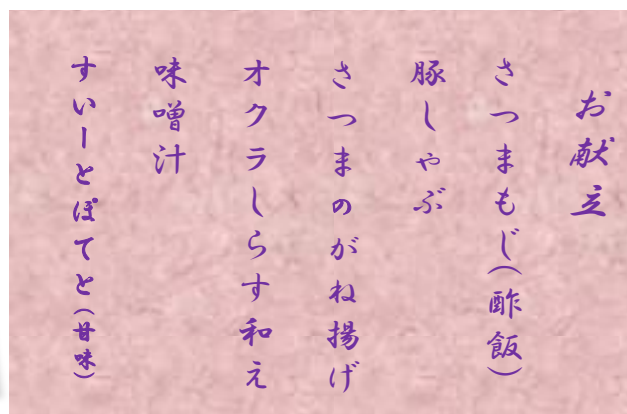 お献立
さつまもじ(酢飯)
豚しゃぶ
さつまのがね揚げ
オクラしらす和え
味噌汁
すいーとぽてと(甘味)